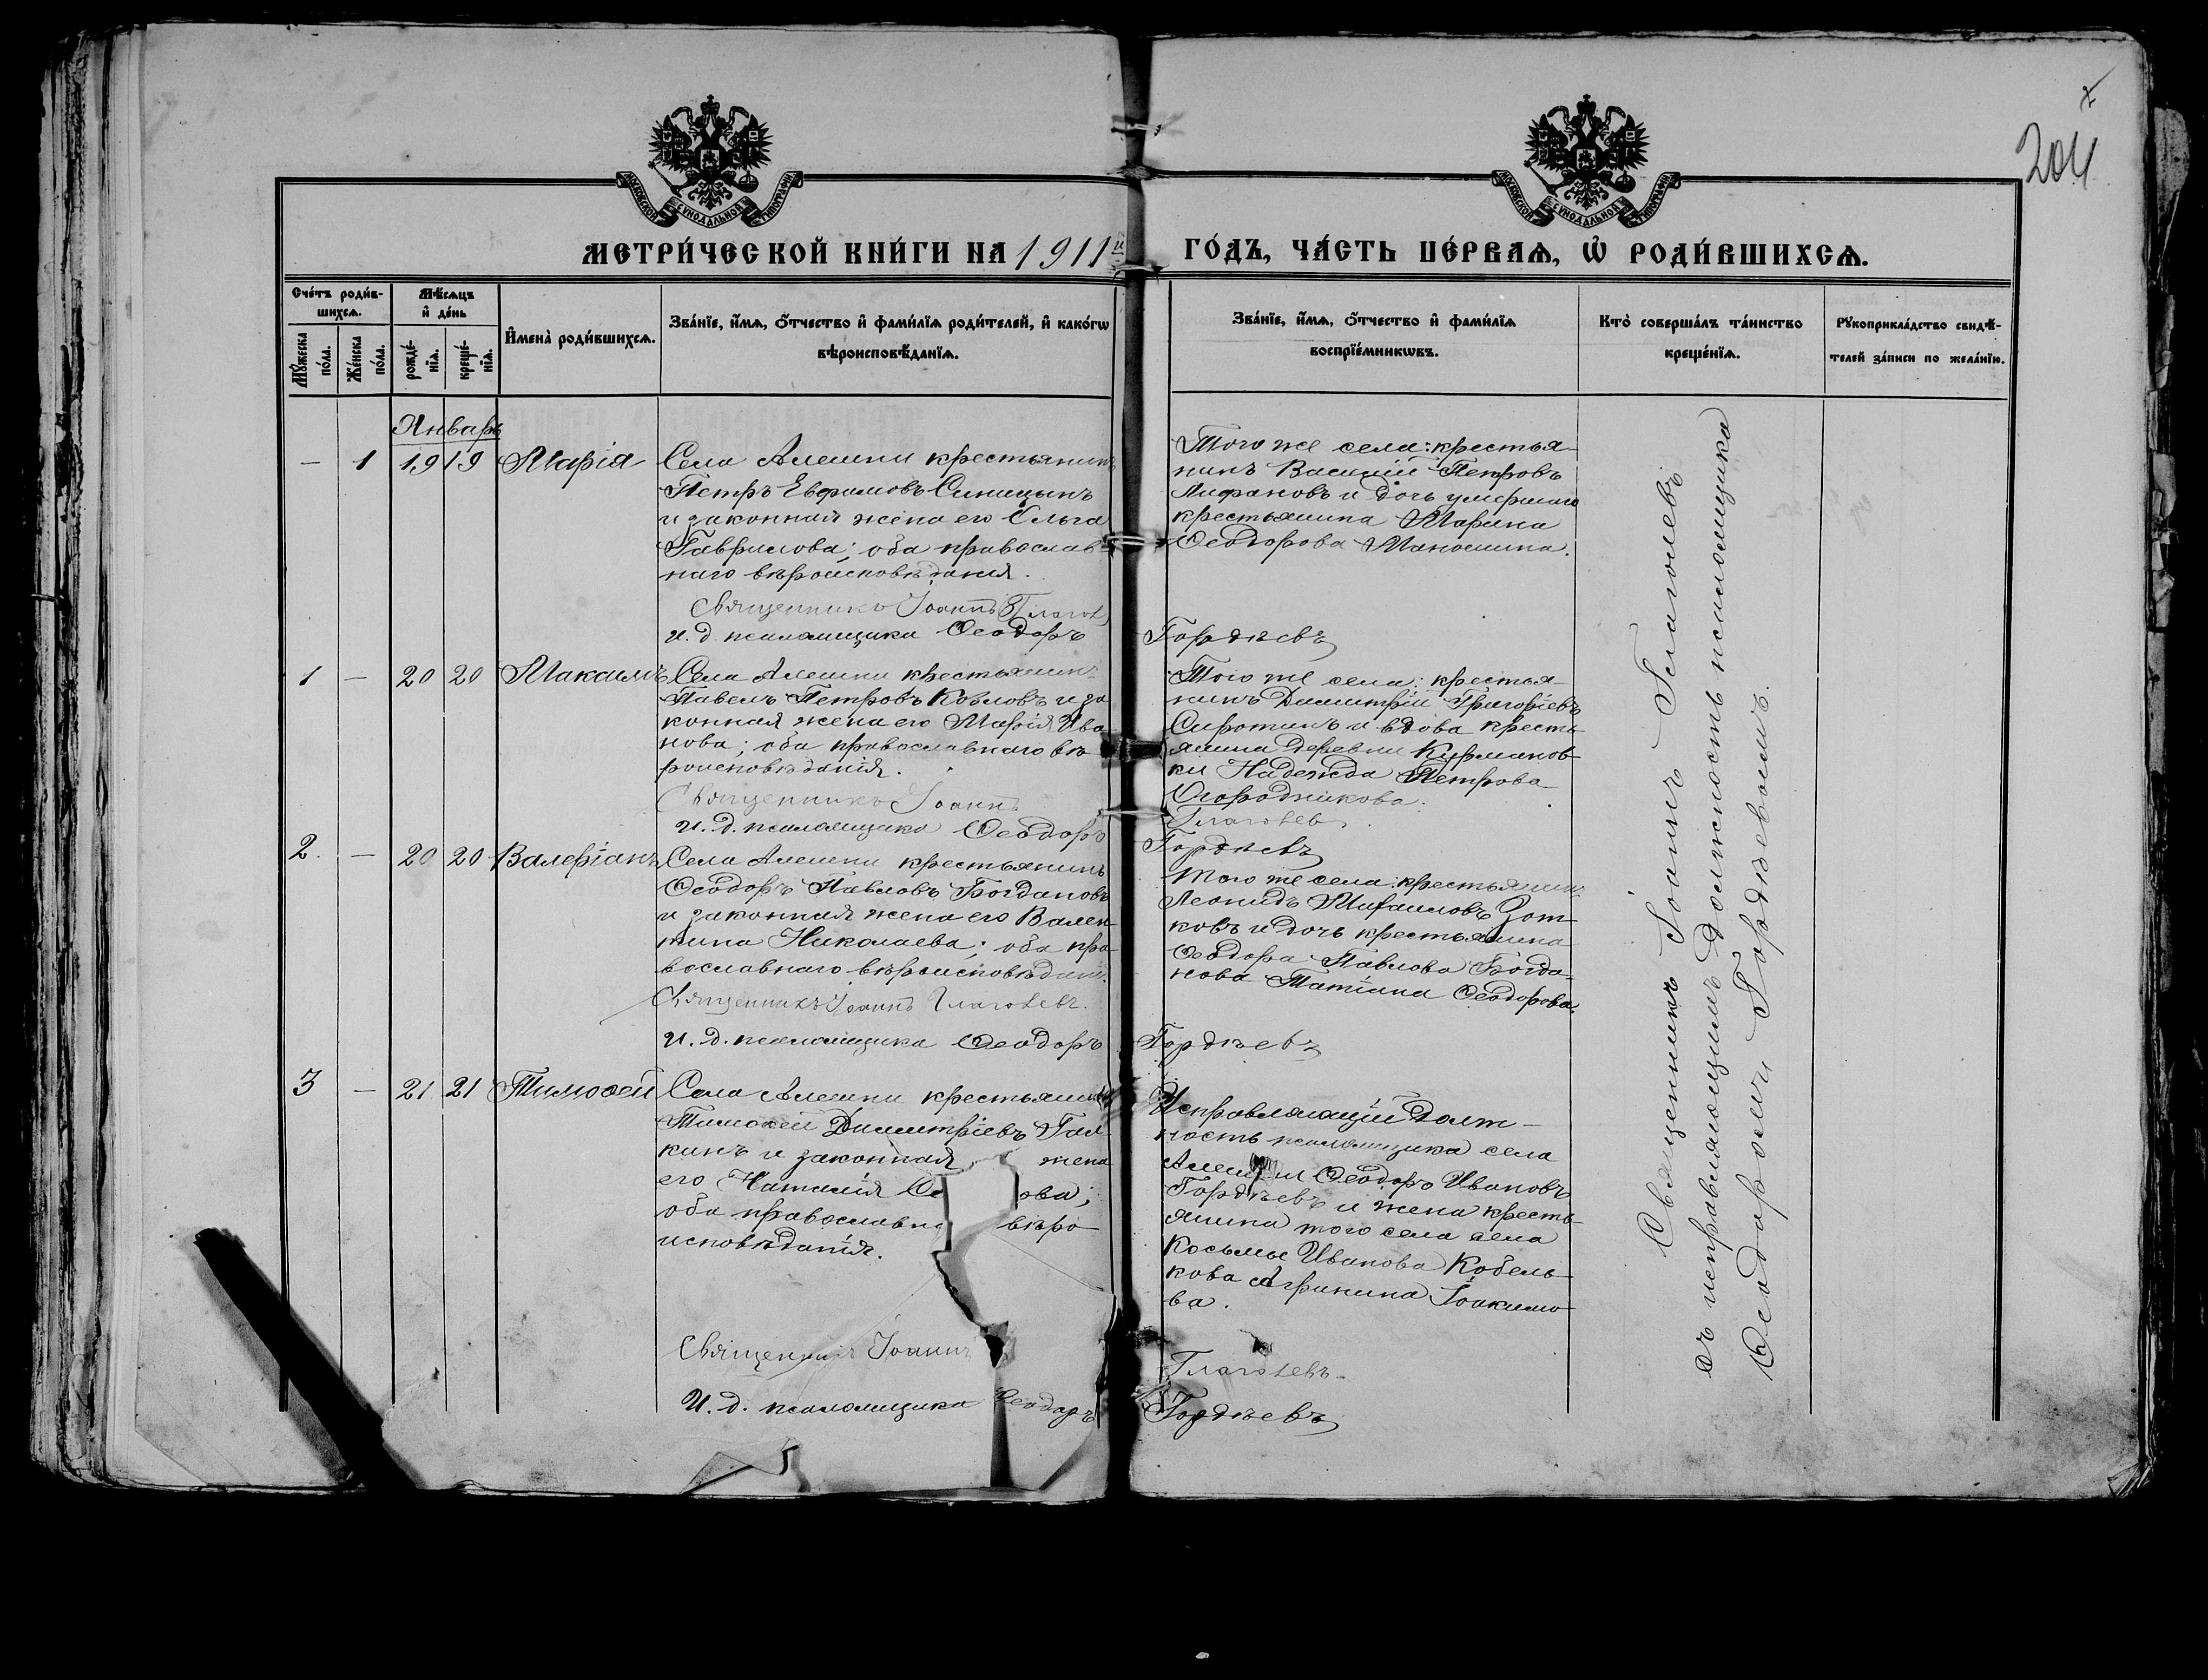 204
МОСКОВСКОЙ СѴНОДАЛЬНОЙ ТИПОГРАФІИ
МОСКОВСКОЙ СѴНОДАЛЬНОЙ ТИПОГРАФІИ
МЕТРИ́ЧЕСКОЙ КНИ́ГИ НА 1911й ГО́ДЪ, ЧА́СТЬ ПЕ́РВАѦ, Ѡ҆ РОДИ́ВШИХСѦ.
Сче́тъ роди́в-
шихсѧ.
Мꙋ́жеска
по́ла.
Же́нска
по́ла.
Мѣ́сѧцъ
и҆ де́нь
рожде́-
нїѧ.
креще́-
нїѧ.
И҆мена̀ роди́вшихсѧ.
Зва́нїе, и҆́мѧ, ѻ҆́тчество и҆ фами́лїѧ роди́телей, и҆ како́гѡ
вѣроисповѣ́данїѧ.
Зва́нїе, и҆́мѧ, ѻ҆́тчество и҆ фами́лїѧ
воспрїе́мникѡвъ.
Кто̀ соверша́лъ та́инство
креще́нїѧ.
Рꙋкоприкла́дство свидѣ́-
телей за́писи по жела́нїю.
Январь
— 1 19 19 Марія
Села Алешни крестьянинъ
Петръ Евфимовъ Синицынъ
и законная жена его Ольга
Гаврилова; оба православ-
наго вѣроисповѣданія.
Священникъ Іоаннъ Глаголев
и. д. псаломщика Ѳеодоръ Гордѣевъ
Того же села: крестья-
нинъ Василій Петровъ
Лифановъ и дочь умершаго
крестьянина Марина
Ѳеодорова Маношина.
1 — 20 20 Максимъ
Села Алешни крестьянинъ
Павелъ Петровъ Козловъ и за
конная жена его Марія Ива
нова; оба православнаго вѣ
роисповѣданія.
Священникъ Іоаннъ Глаголев
и. д. псаломщика Ѳеодоръ Гордѣевъ
Того же села: крестья-
нинъ Димитрій Григоріевъ
Сиротинъ и вдова кресть-
янина деревни Курманов-
ки Надежда Петрова
Огородникова.
2. — 20 20 Валеріанъ
Села Алешни крестьянинъ
Ѳеодоръ Павловъ Богдановъ
и законная жена его Вален
тина Николаева; оба пра
вославнаго вѣроисповѣданія.
Священникъ Іоаннъ Глаголевъ.
и. д. псаломщика Ѳеодоръ Гордѣевъ
Того же села: крестьянинъ
Леонидъ Михаиловъ Зот-
ковъ и дочь крестьянина
Ѳеодора Павлова Богда-
нова Татіана Ѳеодорова.
3 — 21 21 Тимоѳей
Села Алешни крестьянинъ
Тимоѳей Димитріевъ Гал
кинъ и законная жена
его Наталія ова;
оба православна вѣро-
исповѣданія.
Священникъ Іоаннъ Глаголевъ.
И. д. псаломщика Ѳеодоръ Гордѣевъ
Исправляющій долж-
ность псаломщика села
Алешни Ѳеодоръ Ивановъ
Гордѣевъ и жена кресть-
янина того села
Косьмы Иванова Кобель-
кова Агрипина Іоакимо-
ва.
Священникъ Іоаннъ Глаголевъ
съ исправляющимъ должность псаломщика
Ѳеодоромъ Гордѣевымъ.